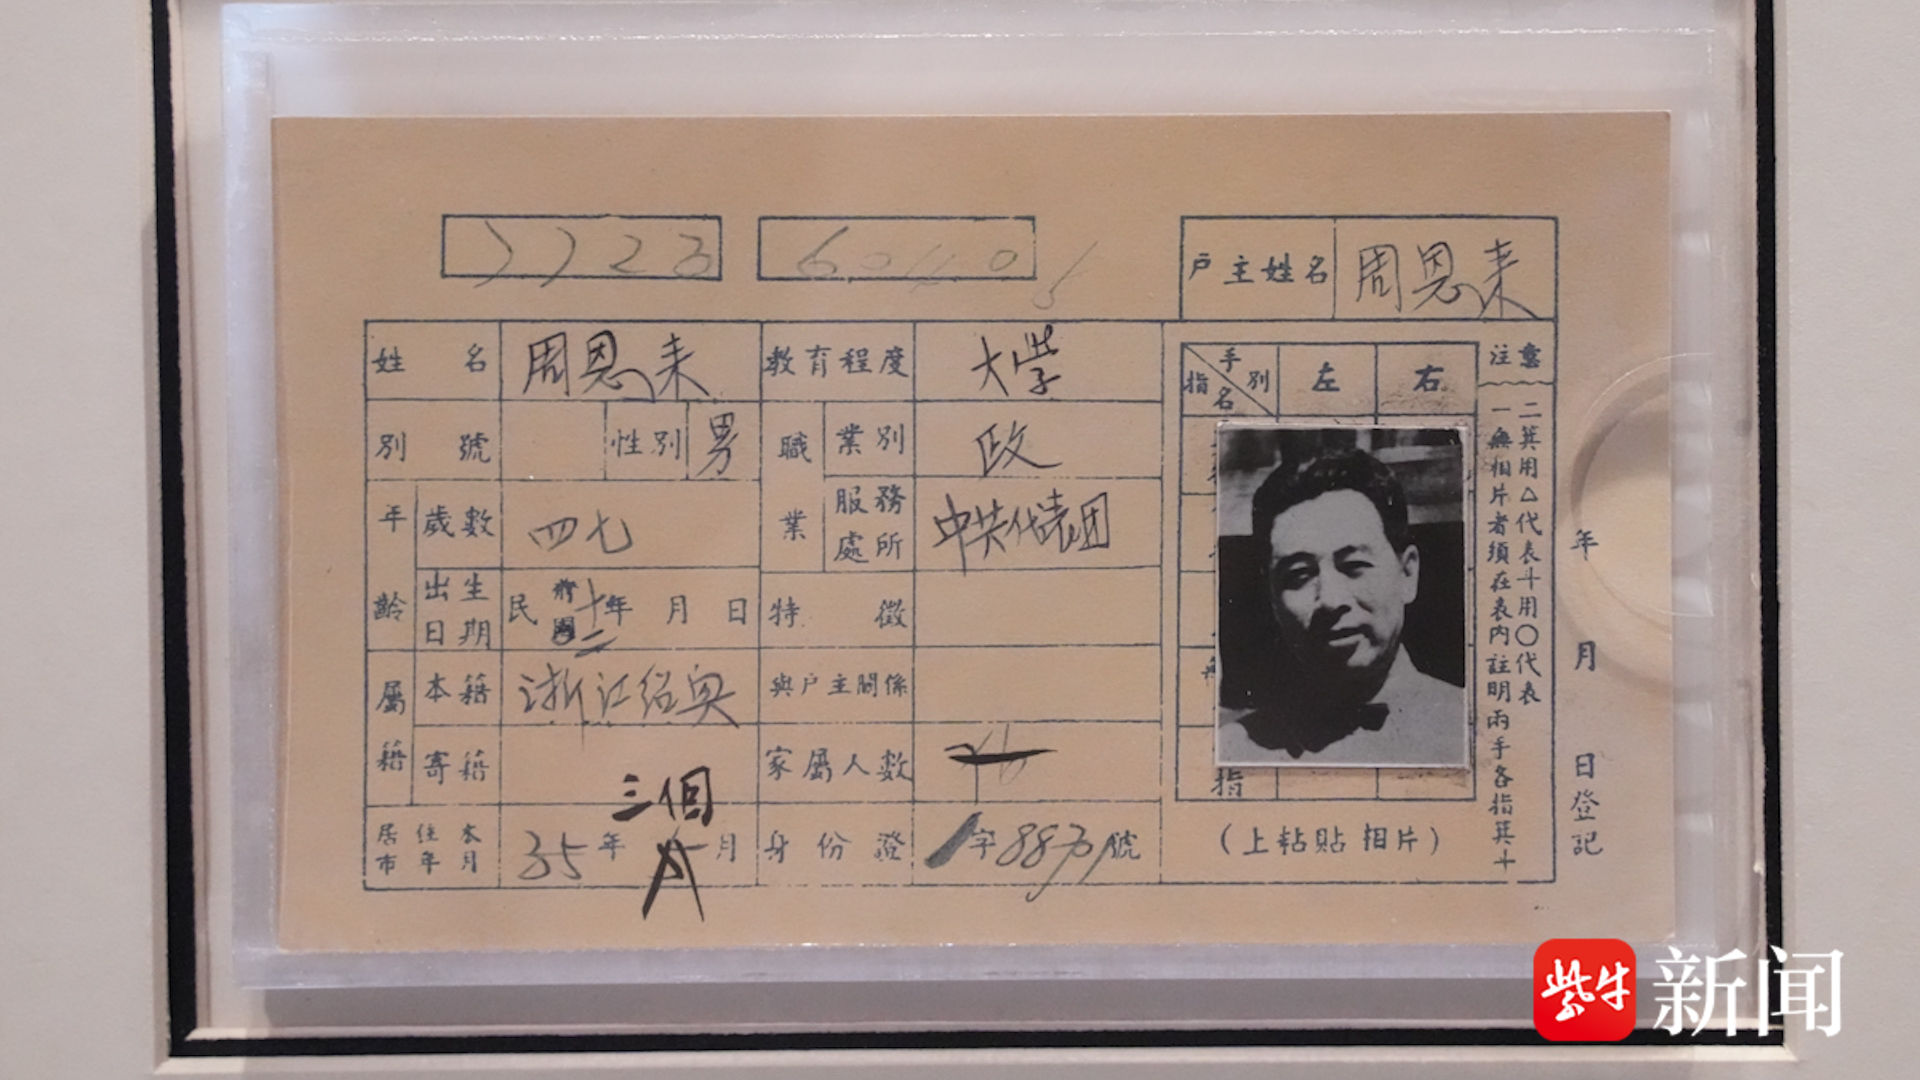 7723
户主姓名 周恩来
姓名 周恩来 教育程度 大学
別號 性別 男 職業 業別 政
年齡 歲數 四七 服務處所 中共代表团
出生日期 民前國十二年 月 日 特徵
屬籍 本籍 浙江绍兴 與户主關係
寄籍 家屬人数
居住本市年月 35年 三個月 身份證 字 號
手別 指名 左 右
指
(上粘貼相片)
注意
一無相片者須在表內註明兩手各指箕斗
二箕用△代表斗用○代表
年 月 日登記
紫牛 新闻